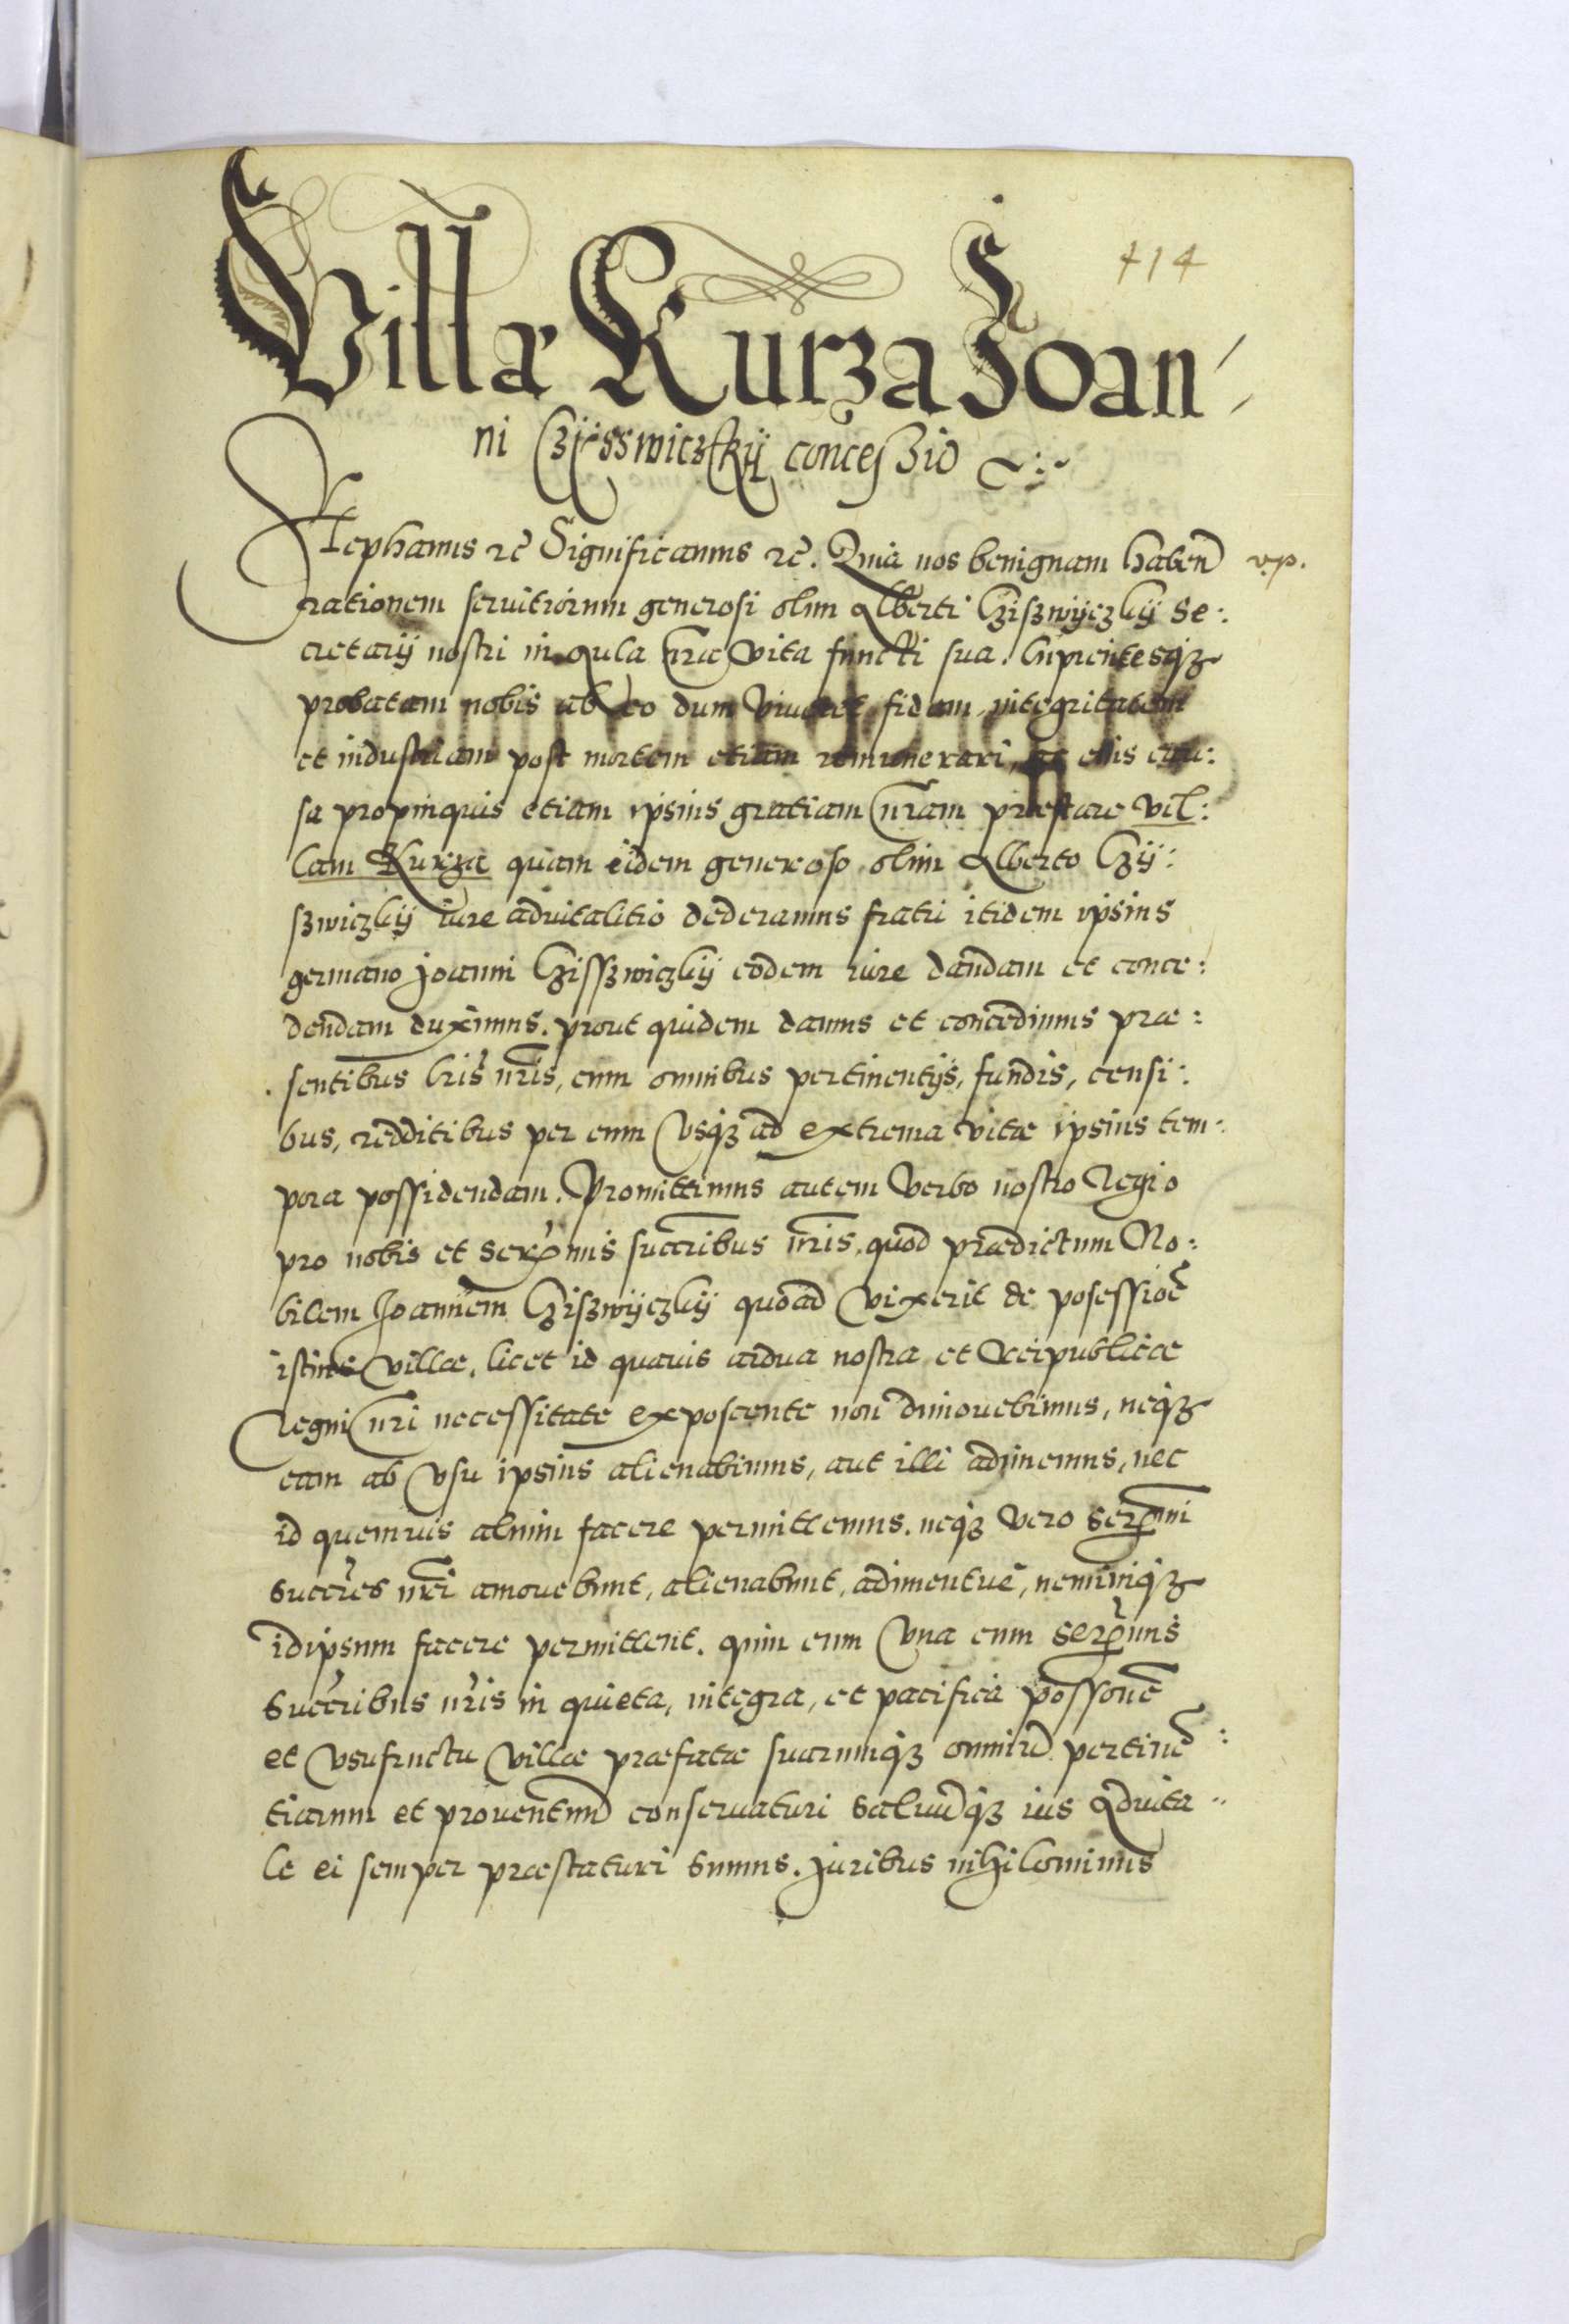 414
Villæ Kurza Joan-
ni Czÿsswiczkÿ conceszio
Stephanus etc̃ Significamus etc̃. Quia nos benignam haben̄ v.p.
rationem seruitiorum generosi olim Alberti Cziszwÿczkÿ Se:
cretarÿ nostri in Aula nr̃a vita functi sua. Cupientesq3
probatam nobis ab eo dum viueret fidem, integritatem
et industriam post mortem etiam remunerari, ac eius cau:
sa propinquis etiam ipsius gratiam nr̃am præstare vil:
lam Kurza quam eidem generoso olim Alberto Czÿ:
szwiczkÿ iure aduitalitio dederamus fratri itidem ipsius
germano Joanni Czisszwiczkÿ eodem iure dandam et conce:
dendam duximus. prout quidem damus et concedimus præ:
sentibus l̃ris nr̃is, cum omnibus pertinentÿs, fundis, censi:
bus, redditibus per eum vsq3 ad extrema vitæ ipsius tem:
pora possidendam. Promittimus autem verbo nostro Regio
pro nobis et Ser̃mis succr̃ibus nr̃is, quod prædictum No:
bilem Joannem Cziszwÿczkÿ quoad vixerit de posessiõe
istius villæ, licet id quauis ardua nostra et Reipublicæ
Regni nr̃i necessitate exposcente non dimouebimus, neq3
eam ab vsu ipsius alienabimus, aut illi adimemus, nec
id quemuis alium facere permittemus. neq3 vero Ser̃mi
Succr̃es nr̃i amouebunt, alienabunt, adimentue, neminiq3
idipsum facere permittent. quin eum vna cum Ser̃mis
Succr̃ibus nr̃is in quieta, integra, et pacifica possone̅
et vsufructu villæ præfatæ suarumq3 omniu̅ pertine̅:
tiarum et prouentuu̅ conseruaturi saluu̅q3 ius Aduita:
le ei semper præstaturi sumus. Juribus nihilominus